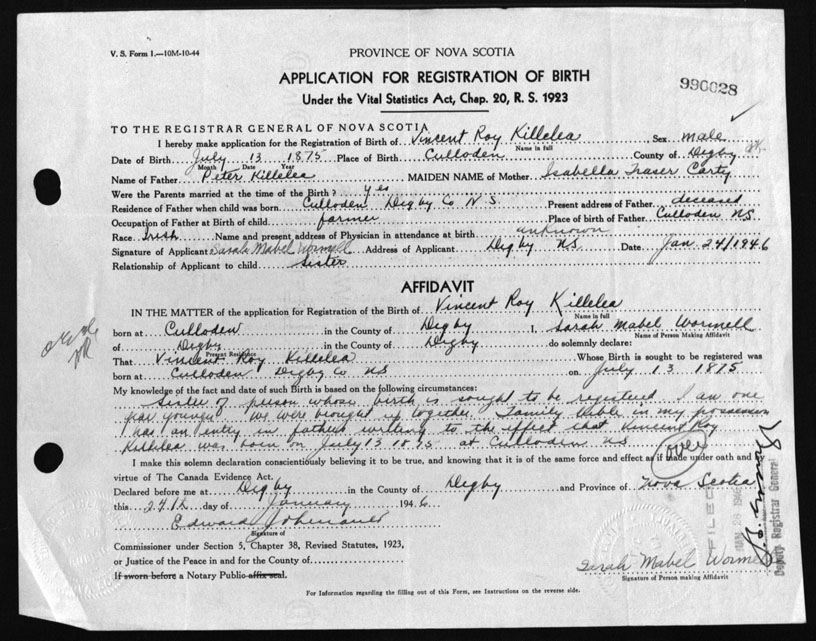 V. S. Form 1.—10M-10-44
PROVINCE OF NOVA SCOTIA
APPLICATION FOR REGISTRATION OF BIRTH
990028
Under the Vital Statistics Act, Chap. 20, R. S. 1923
TO THE REGISTRAR GENERAL OF NOVA SCOTIA
I hereby make application for the Registration of Birth of Vincent Roy Killelea Sex male
Name in full
Date of Birth July 13 1875 Place of Birth Culloden County of Digby
Month Date Year
Name of Father Peter Killelea MAIDEN NAME of Mother Isabella Fraser Carty
Were the Parents married at the time of the Birth? yes
Residence of Father when child was born Culloden Digby Co N.S. Present address of Father deceased
Occupation of Father at Birth of child farmer Place of birth of Father Culloden NS
Race Irish Name and present address of Physician in attendance at birth unknown
Signature of Applicant Sarah Mabel Wormell Address of Applicant Digby NS Date Jan 24/1946
Relationship of Applicant to child sister
AFFIDAVIT
IN THE MATTER of the application for Registration of the Birth of Vincent Roy Killelea
Name in full
born at Culloden in the County of Digby I, Sarah Mabel Wormell
Name of Person Making Affidavit
of Digby in the County of Digby do solemnly declare:
Present Residence
That Vincent Roy Killelea Whose Birth is sought to be registered was
born at Culloden Digby Co NS on July 13 1875
My knowledge of the fact and date of such Birth is based on the following circumstances:
Sister of person whose birth is sought to be registered I am one
year younger we were brought up together. Family Bible in my possession
has an entry in fathers writing to the effect that Vincent Roy
Killelea was born on July 13 1875 at Culloden NS
over
I make this solemn declaration conscientiously believing it to be true, and knowing that it is of the same force and effect as if made under oath and by
virtue of The Canada Evidence Act.
Declared before me at Digby in the County of Digby and Province of Nova Scotia
this 24th day of January 1946
Edward
Signature of
Commissioner under Section 5, Chapter 38, Revised Statutes, 1923,
or Justice of the Peace in and for the County of
If sworn before a Notary Public affix seal.
Sarah Mabel Wormell
Signature of Person making Affidavit
For Information regarding the filling out of this Form, see Instructions on the reverse side.
FILED
Deputy Registrar General